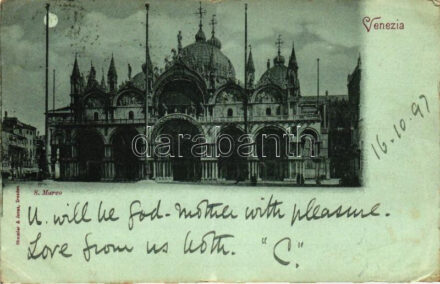 Venezia
16-10.97
darabanth
S. Marco
U. will be God-mother with pleasure.
Love from us both. "C."